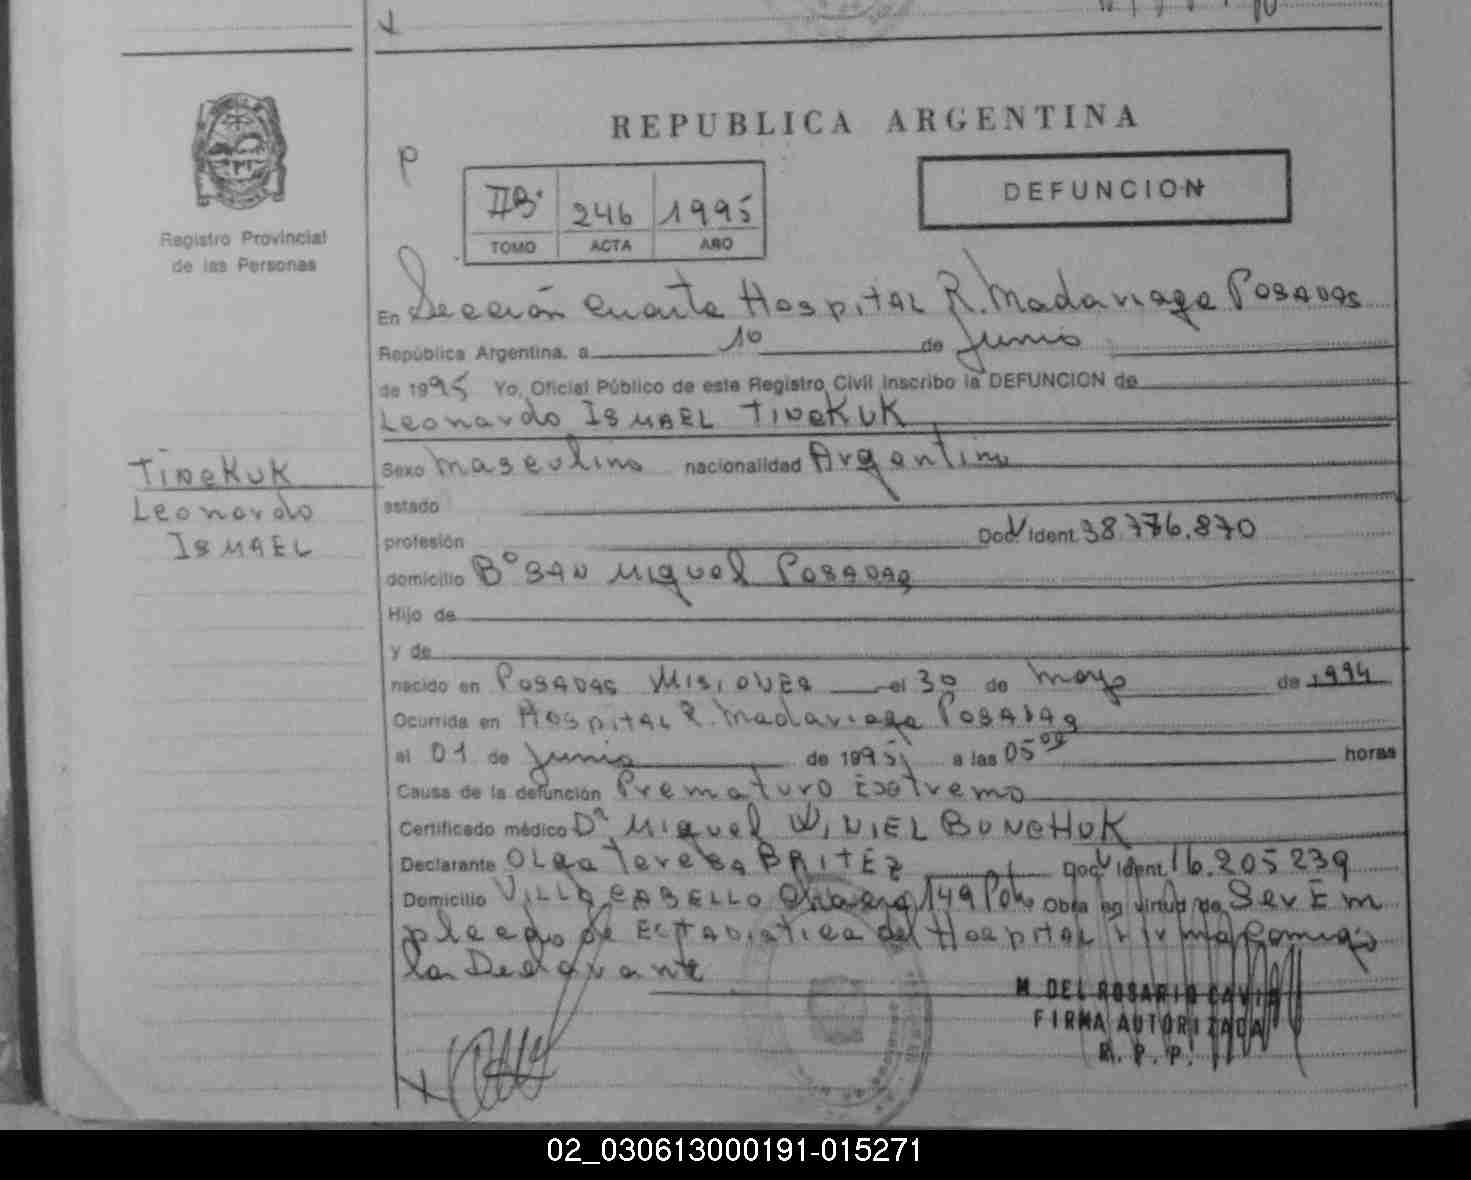 REPUBLICA ARGENTINA
P
IIB. 246 1995
TOMO ACTA AÑO
DEFUNCION
Registro Provincial
de las Personas
En Sección Cuarta Hospital R. Madariaga Posadas
República Argentina, a 10 de Junio
de 1995 Yo, Oficial Público de este Registro Civil inscribo la DEFUNCION de
Leonardo ISMAEL TINEKUK
TINEKUK
Leonardo
ISMAEL
Sexo masculino nacionalidad Argentino
estado
profesión Doc Ident. 38.776.870
domicilio Bº SAN Miguel Posadas
Hijo de
y de
nacido en Posadas Misiones el 30 de mayo de 1994
Ocurrida en Hospital R. Madariaga Posadas
el 01 de Junio de 1995 a las 05 00 horas
Causa de la defunción Prematuro Extremo
Certificado médico Dr. Miguel BONCHUK
Declarante Olga Teresa BRITEZ Doc Ident. 16.205.239
Domicilio VILLA CABELLO 149 Obra en virtud de Ser Em
pleado de Estadistica del Hospital firma Comigo
la Declarante
M. DEL ROSARIO CAVIA
FIRMA AUTORIZADA
R. P. P.
02_030613000191-015271